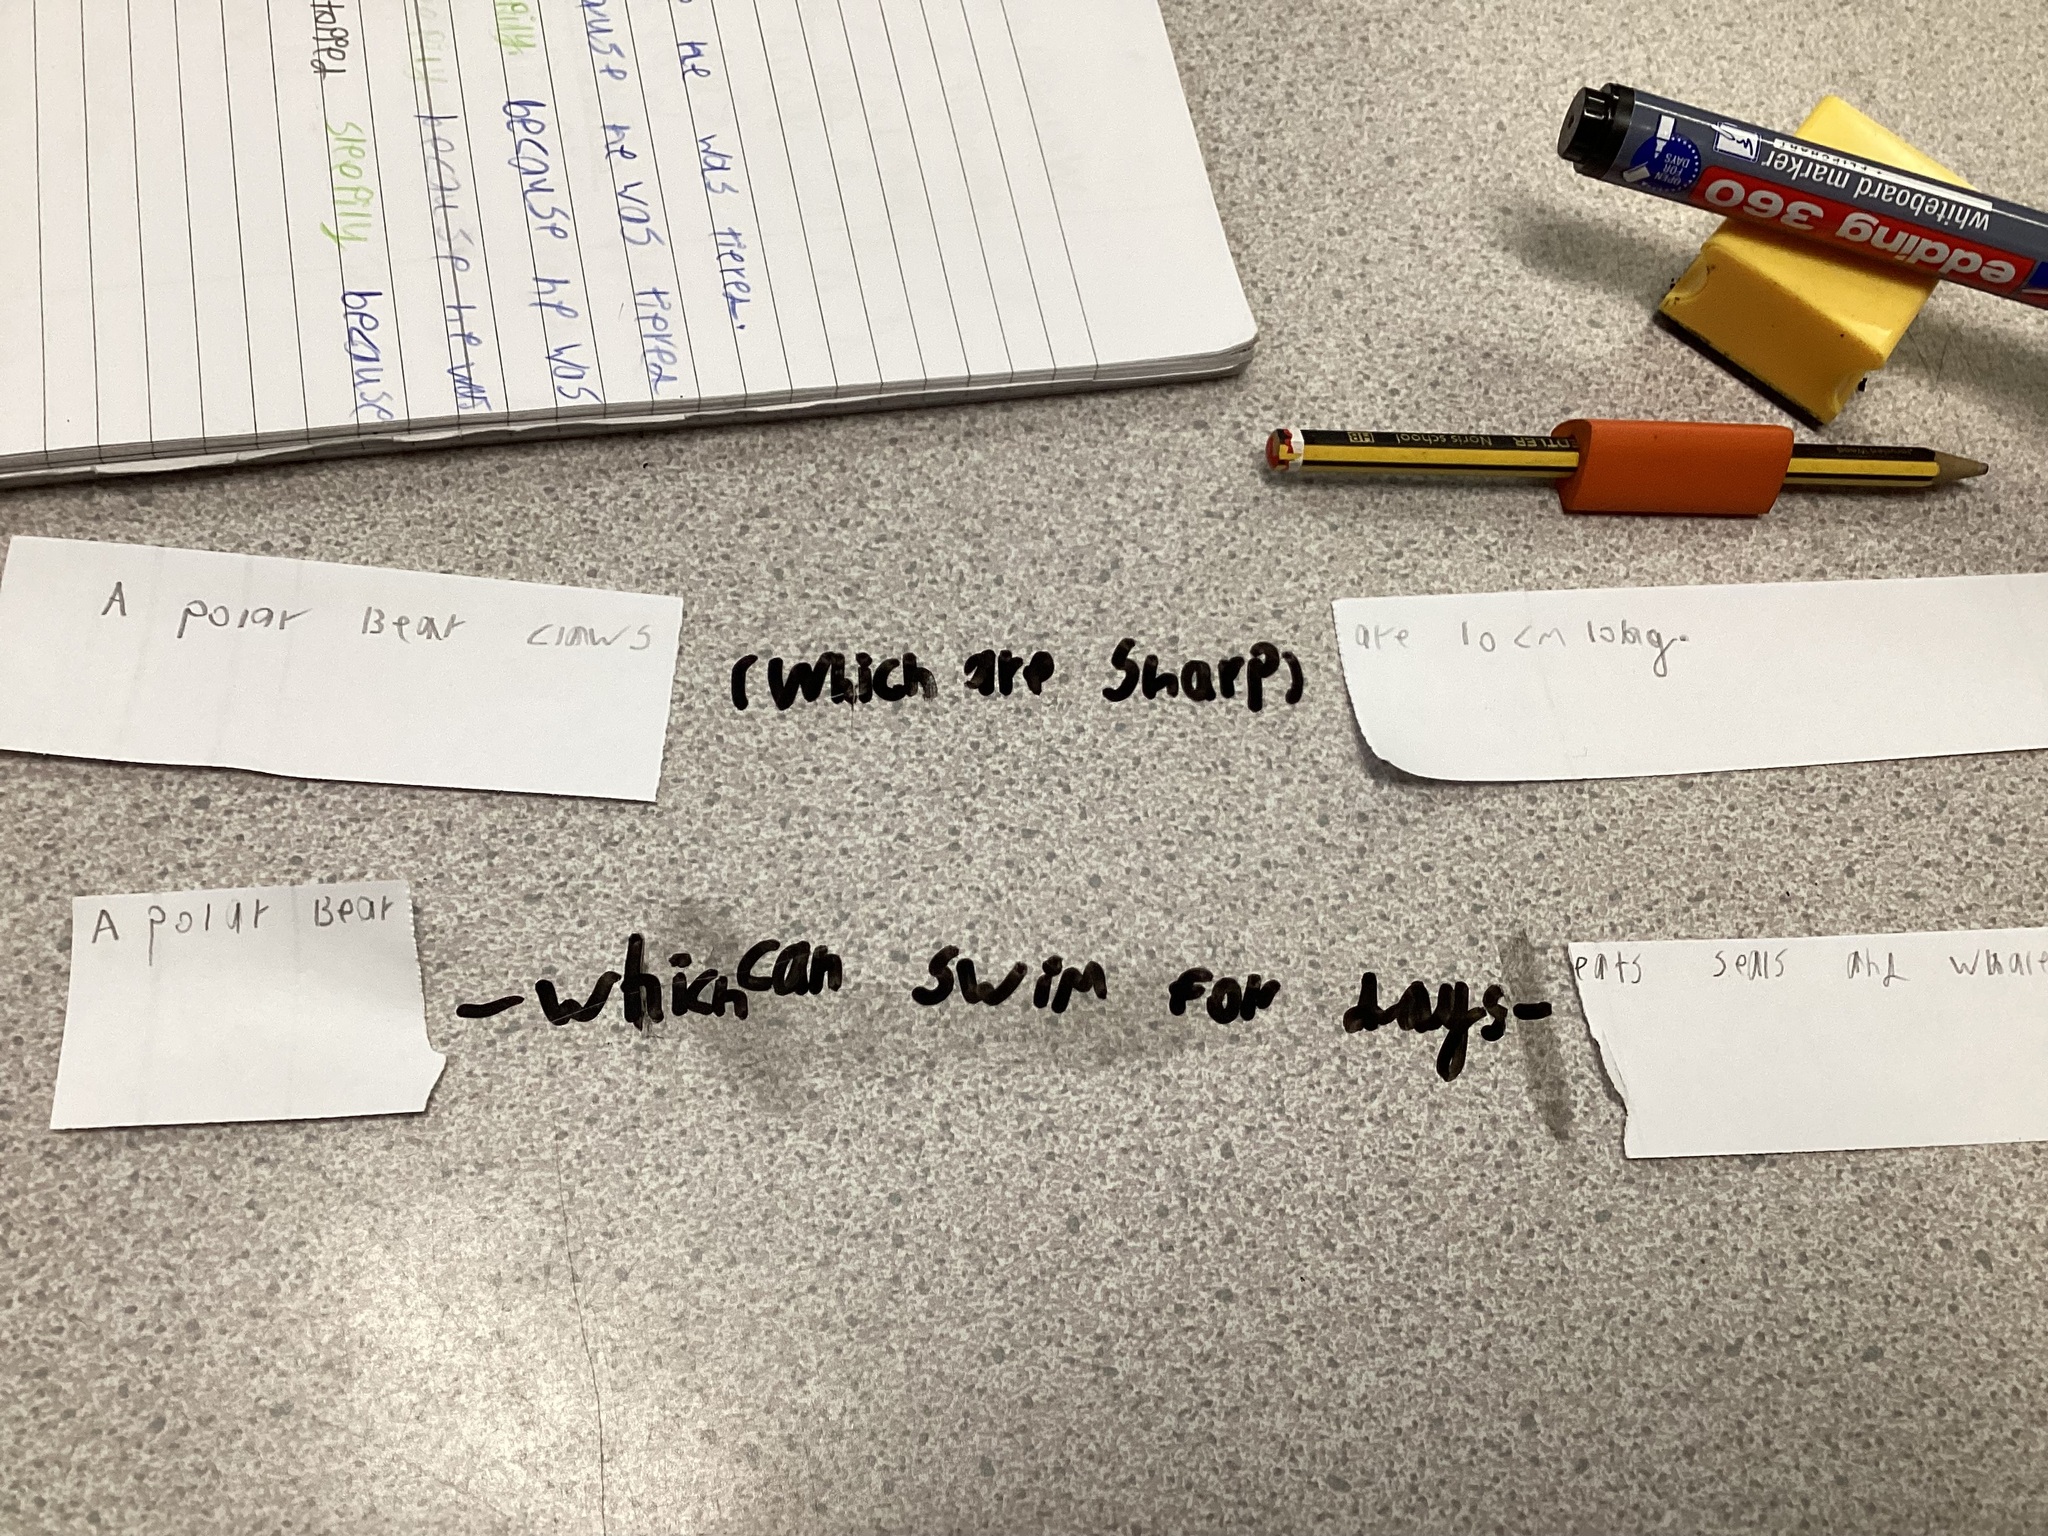 topped sleepily because
because he was
because he was
ause he was tiered
he was tiered.
OPEN FOR DAYS
whiteboard marker
edding 360
Noris school HB
A polar Bear claws (which are sharp) are 10 cm long.
A polar Bear -which can swim for days- eats seals and whale